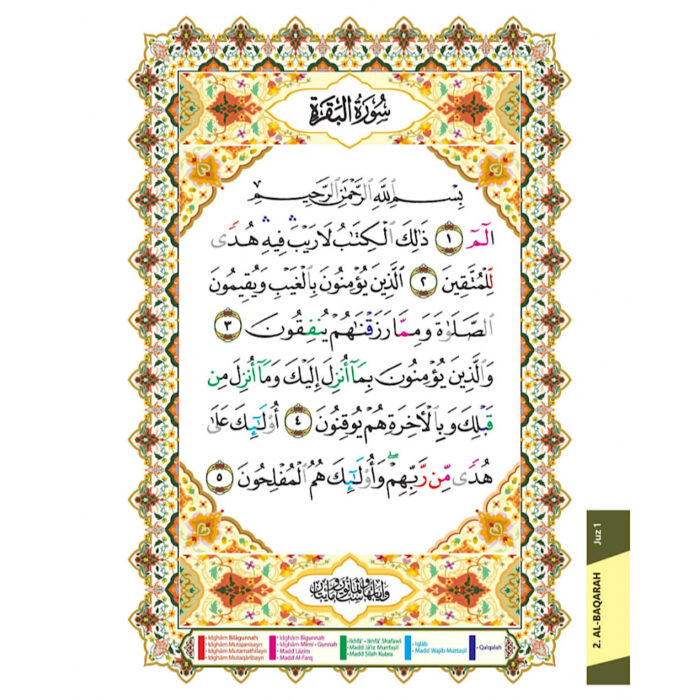 سُورَةُ الْبَقَرَةِ
بِسْمِ اللَّهِ الرَّحْمَٰنِ الرَّحِيمِ
الٓمٓ ١ ذَٰلِكَ الْكِتَابُ لَا رَيْبَ ۛ فِيهِ ۛ هُدًى
لِّلْمُتَّقِينَ ٢ الَّذِينَ يُؤْمِنُونَ بِالْغَيْبِ وَيُقِيمُونَ
الصَّلَوٰةَ وَمِمَّا رَزَقْنَٰهُمْ يُنفِقُونَ ٣
وَالَّذِينَ يُؤْمِنُونَ بِمَآ أُنزِلَ إِلَيْكَ وَمَآ أُنزِلَ مِن
قَبْلِكَ وَبِالْآخِرَةِ هُمْ يُوقِنُونَ ٤ أُولَٰٓئِكَ عَلَىٰ
هُدًى مِّن رَّبِّهِمْ ۖ وَأُولَٰٓئِكَ هُمُ الْمُفْلِحُونَ ٥
Juz 1
2. AL-BAQARAH
• Idghām Bilāgunnah
• Idghām Mutajanisayn
• Idghām Mutamathilayn
• Idghām Mutaqāribayn
• Idghām Bigunnah
• Idghām Mimi • Gunnah
• Madd Lāzim
• Madd Al-Farq
• Ikhfā' • Ikhfā' Shafawī
• Madd Jā'iz Munfaṣil
• Madd Ṣilah Kubra
• Iqlāb
• Madd Wajib Muttaṣil
• Qalqalah